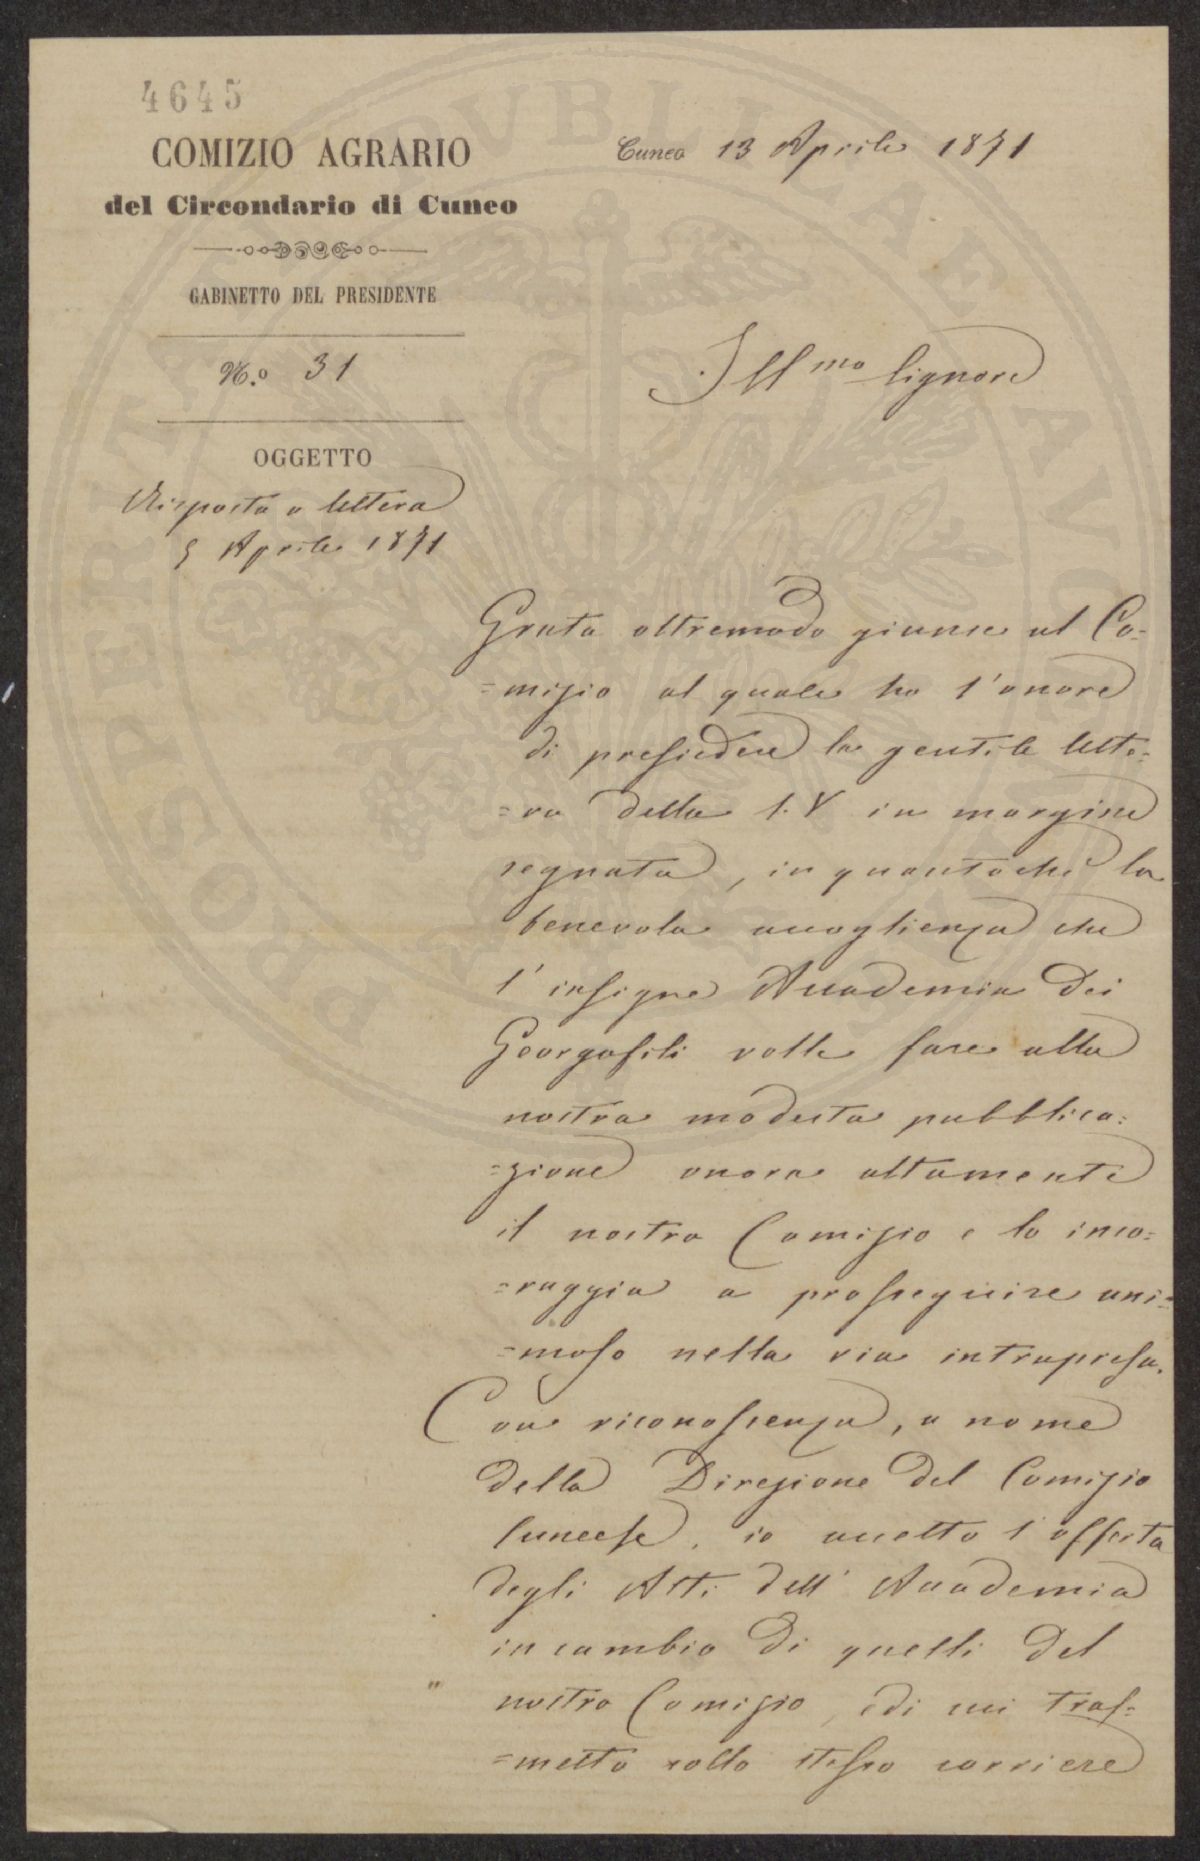 4645
COMIZIO AGRARIO
del Circondario di Cuneo
GABINETTO DEL PRESIDENTE
N.o 31
OGGETTO
Risposta a lettera
5 Aprile 1871
Cuneo 13 Aprile 1871
Ill mo Signore
Grata oltremodo giunse al Co=
=mizio al quale ho l'onore
di presiedere la gentile lette=
=ra della S. V in margine
segnata, in quantoché la
benevola accoglienza che
l'insigne Accademia dei
Georgofili volle fare alla
nostra modesta pubblica=
=zione onora altamente
il nostro Comizio e lo inco=
=raggia a prosseguire ani=
=moso nella via intrapresa.
Con riconoscenza, a nome
della Direzione del Comizio
Cuneese, io accetto l'offerta
degli Atti dell' Accademia
in cambio di quelli del
nostro Comizio, e di cui tras=
=metto collo stesso corriere
PROSPERITATI PUBLICAE AUGENDAE